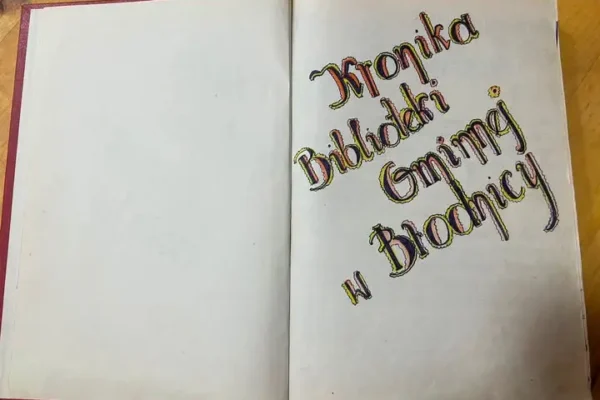 Kronika
Biblioteki
Gminnej
w Brodnicy